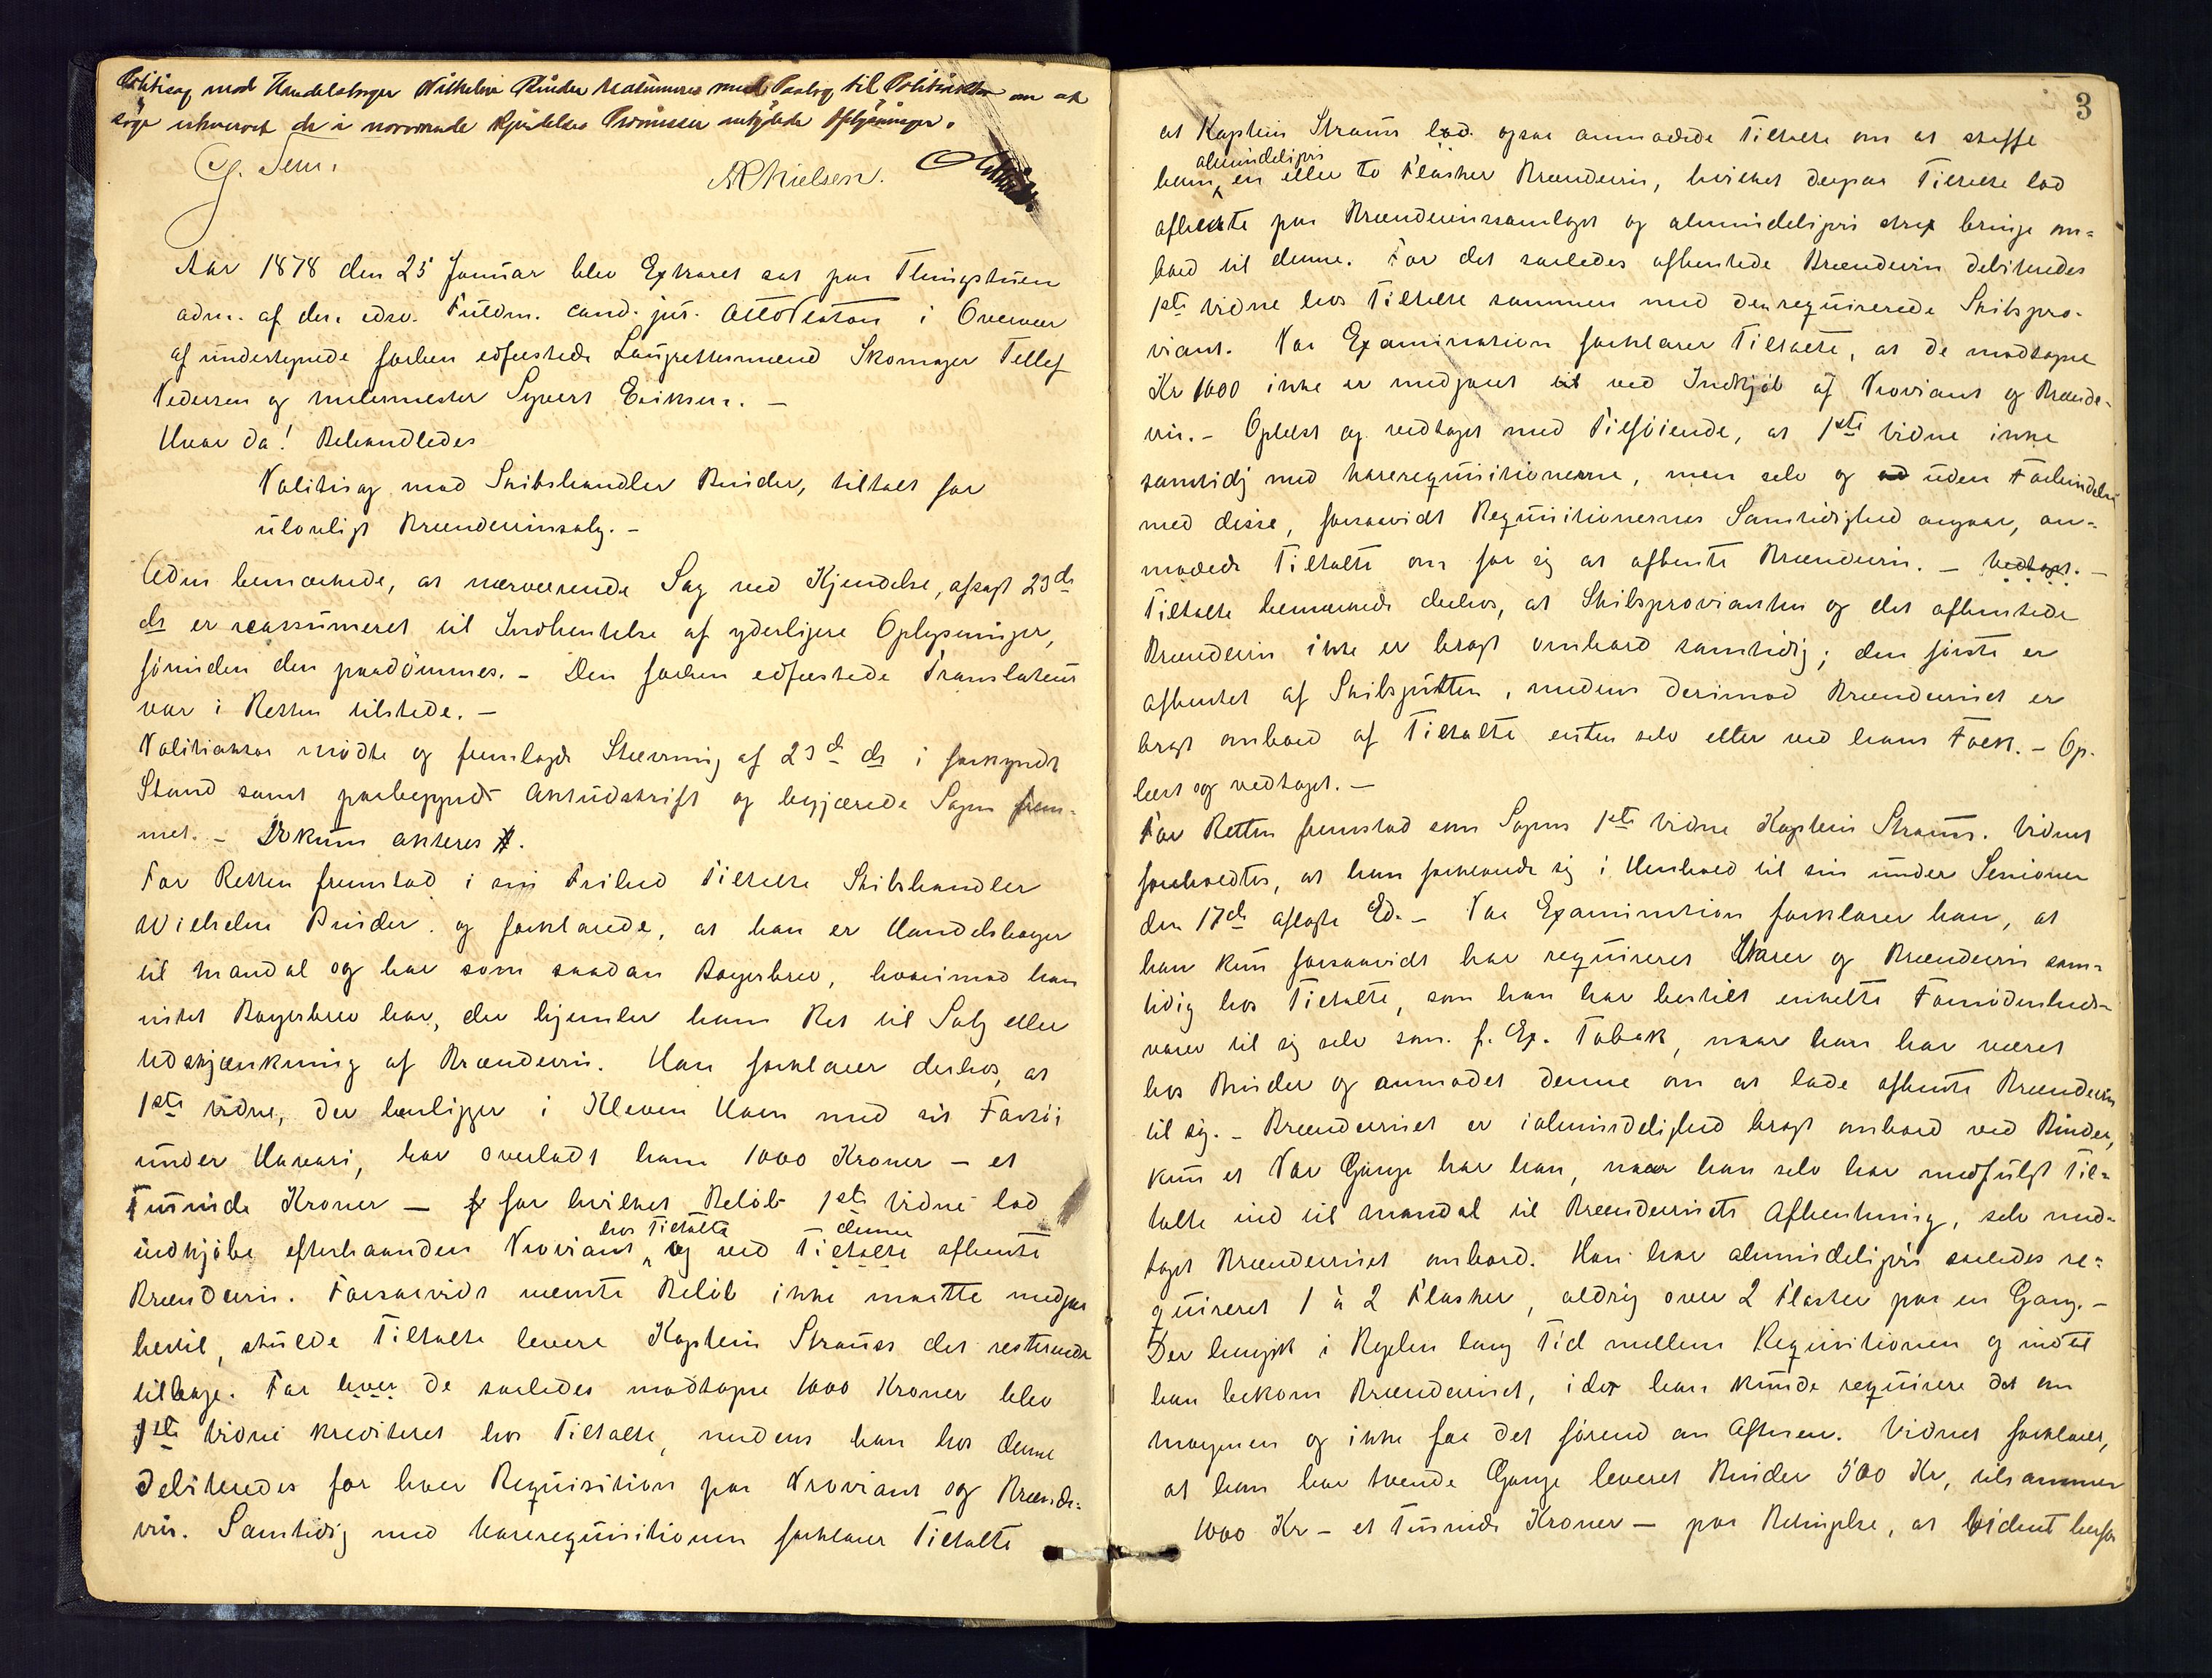 Politisag mod Handelsborger Wilhelm Rinder reassumeres med Paalæg til Politiaktor om at
søge erhvervet de i nærværende Kjendelses Præmisser antydede Oplysninger.
G. Sem. APNielsen.
Aar 1878 den 25 Januar blev Extraret sat paa Thingstuen
adm. af den edsv. Fuldm. cand. jur. Otto Flaton i Overvær
af undertegnede forhen edfæstede Laugrettesmænd Skomager Tellef
Pedersen og Malermester Syvert Eriksen. –
Hvor da! Behandledes
Politisag mod Skibshandler Rinder, tiltalt for
ulovligt Brændevinssalg. –
Adm bemærkede, at nærværende Sag ved Kjendelse, afsagt 23de
ds er reassumeret til Indhentelse af yderligere Oplysninger,
førinden den paadømmes. – Den forhen edfæstede Translateur
var i Retten tilstede. –
Politiaktor mødte og fremlagde Stævning af 23de ds i forkyndt
Stand samt paabegyndt Aktudskrift og begjærede Sagen frem-
met. – Dokum akteres.
For Retten fremstod i sin Frihed Tiltalte Skibshandler
Wilhelm Rinder og forklarede, at han er Handelsborger
til Mandal og har som saadan Borgerbrev, hvorimod han
intet Borgerbrev har, der hjemler ham Ret til Salg eller
Udskjænkning af Brændevin. Han forklarer derhos, at
1ste Vidne, der henligger i Kleven Havn med sit Fartøi
under Havari, har overladt ham 1000 Kroner – et
Tusinde Kroner – for hvilket Beløb 1ste Vidne lod
hos Tiltalte – denne
indkjøbe efterhaanden Proviant, og ved Tiltalte afhente
Brændevin. Forsaavidt nævnte Beløb ikke maatte medgaa
hertil, skulde Tiltalte levere Kaptein Strauss det resterende
tilbage. For hver de saaledes modtagne 1000 Kroner blev
1ste Vidne krediteret hos Tiltalte, medens han hos denne
debiteredes for hver Requisition paa Proviant og Brænde-
vin. Samtidig med Varerequisitionen forklarer Tiltalte
3
at Kaptein Strauss lod ogsaa anmodede Tiltalte om at skaffe
almindeligvis
ham en eller to Flasker Brændevin, hvilket derpaa Tiltalte lod
afhente paa Brændevinssamlaget og almindeligvis strax bringe om-
bord til denne. For det saaledes afhentede Brændevin debiteredes
1ste Vidne hos Tiltalte sammen med den requirerede Skibspro-
viant. Paa Examination forklarer Tiltalte, at de modtagne
Kr 1000 ikke er medgaaet til ved Indkjøb af Proviant og Brænde-
vin. – Oplæst og vedtaget med Tilføiende, at 1ste Vidne ikke
samtidig med Varerequisitionerne, men selv og ad uden Forbindelse
med disse, forsaavidt Requisitionernes Samtidighed angaar, an-
modede Tiltalte om for sig at afhente Brændevin. – Vedtaget. –
Tiltalte bemærkede derhos, at Skibsprovianten og det afhentede
Brændevin ikke er bragt ombord samtidig; den første er
afhentet af Skibsgutten, medens derimod Brændevinet er
bragt ombord af Tiltalte enten selv eller ved hans Folk. – Op-
læst og vedtaget. –
For Retten fremstod som Sagens 1ste Vidne Kaptein Strauss. Vidnet
foreholdtes, at han forklarede sig i Henhold til sin under Sessionen
den 17de aflagte Ed. – Paa Examination forklarer han, at
han kun forsaavidt har requireret Varer og Brændevin sam-
tidig hos Tiltalte, som han har bestilt enkelte Fornødenheds-
varer til sig selv som f. Ex. Tobak, naar han har været
hos Rinder og anmodet denne om at lade afhente Brændevin
til sig. – Brændevinet er i almindelighed bragt ombord ved Rinder,
kun et Par Gange har han, naar han selv har medfulgt Til-
talte ind til Mandal til Brændevinets Afhentning, selv med-
taget Brændevinet ombord. Han har almindeligvis saaledes re-
quireret 1 à 2 Flasker, aldrig over 2 Flasker paa en Gang. –
Der hengik i Regelen lang Tid mellem Requisitionen og indtil
han bekom Brændevinet, idet han kunde requirere det om
Morgenen og ikke faa det førend om Aftenen. Vidnet forklarer,
at han har tvende Gange leveret Rinder 500 Kr, tilsammen
1000 Kr – et Tusinde Kroner – paa Betingelse, at Vidnet herfor